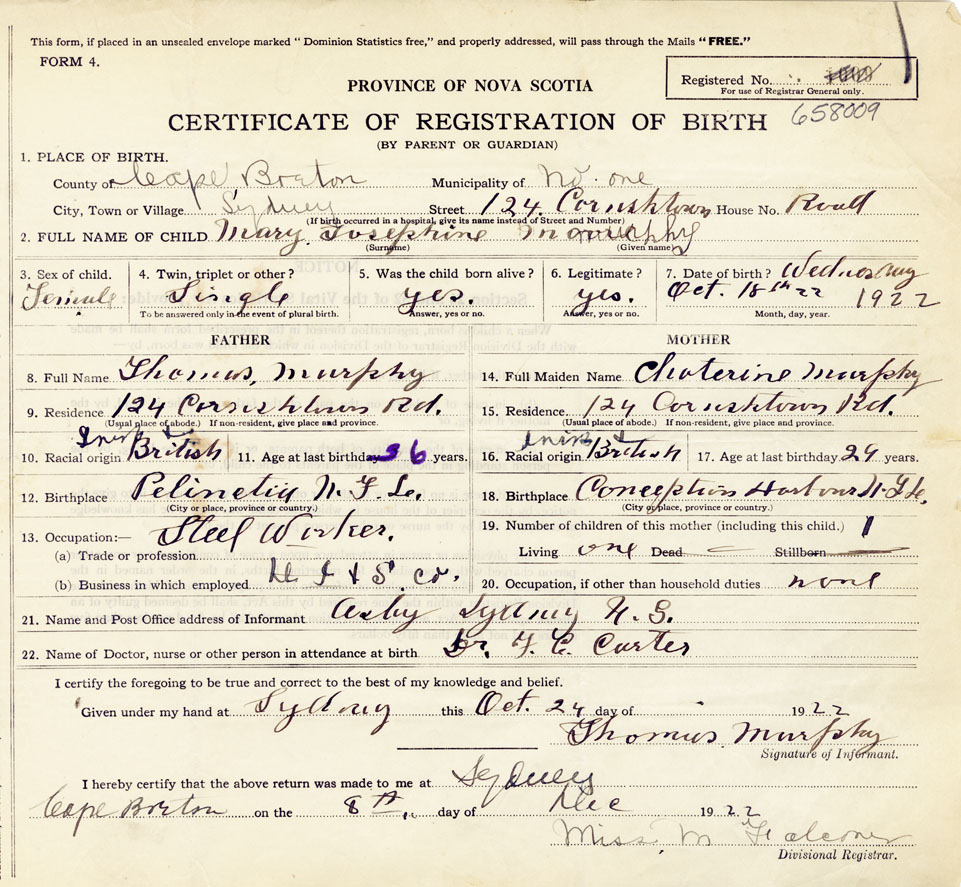 This form, if placed in an unsealed envelope marked "Dominion Statistics free," and properly addressed, will pass through the Mails "FREE."
FORM 4.
Registered No.
For use of Registrar General only.
PROVINCE OF NOVA SCOTIA
658009
CERTIFICATE OF REGISTRATION OF BIRTH
(BY PARENT OR GUARDIAN)
1. PLACE OF BIRTH.
County of Cape Breton Municipality of No. one
City, Town or Village Sydney Street 124 Cornishtown House No. Road
(If birth occurred in a hospital, give its name instead of Street and Number)
2. FULL NAME OF CHILD Mary Josephine Murphy
(Surname) (Given name)
3. Sex of child. 4. Twin, triplet or other? 5. Was the child born alive? 6. Legitimate? 7. Date of birth? Wednesday
Female Single yes. yes. Oct. 18th 22 1922
To be answered only in the event of plural birth. Answer, yes or no. Answer, yes or no. Month, day, year.
FATHER MOTHER
8. Full Name Thomas, Murphy 14. Full Maiden Name Chaterine Murphy
9. Residence 124 Cornishtown Rd. 15. Residence 124 Cornishtown Rd.
(Usual place of abode.) If non-resident, give place and province. (Usual place of abode.) If non-resident, give place and province.
Irish Irish
10. Racial origin British 11. Age at last birthday 36 years. 16. Racial origin British 17. Age at last birthday 29 years.
12. Birthplace N. F. Le. 18. Birthplace Conception Harbour N. F. Le.
(City or place, province or country.) (City or place, province or country.)
13. Occupation:— Steel Worker. 19. Number of children of this mother (including this child.) 1
(a) Trade or profession Living one Dead Stillborn
(b) Business in which employed & S. Co. 20. Occupation, if other than household duties none
21. Name and Post Office address of Informant Sydney N. S.
22. Name of Doctor, nurse or other person in attendance at birth Dr. F. C. Carter
I certify the foregoing to be true and correct to the best of my knowledge and belief.
Given under my hand at Sydney this Oct. 24 day of 1922
Thomas Murphy
Signature of Informant.
I hereby certify that the above return was made to me at Sydney
Cape Breton on the 8th day of Dec 1922
Miss. M Falconer
Divisional Registrar.